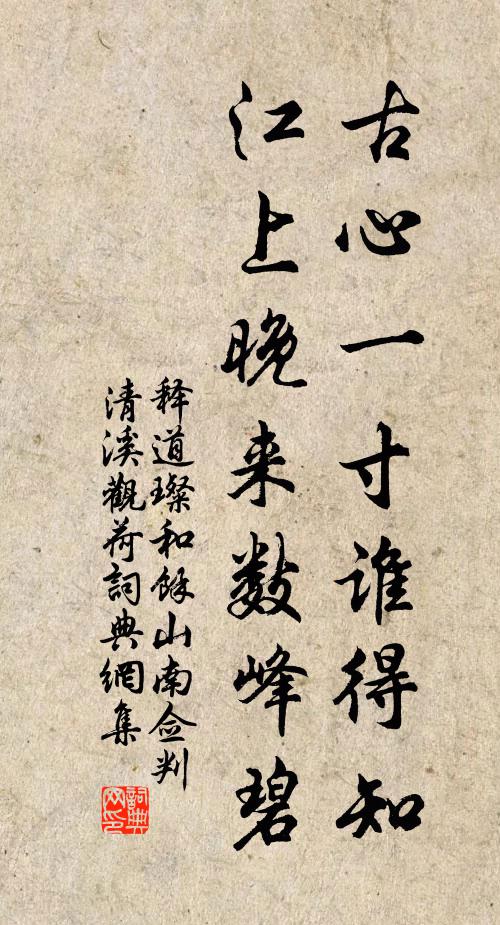 古心一寸谁得知
江上晚来数峰碧
释道璨和馀山南佥判
清溪觀荷詞典網集
詞典网印